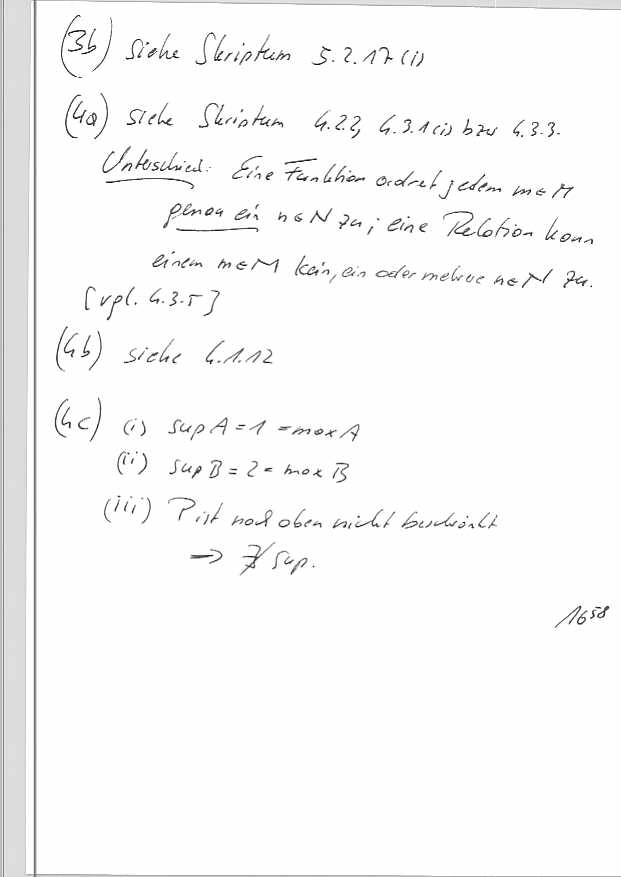 (3b) siehe Skriptum 5.2.17(i)
(4a) siehe Skriptum 4.2.2, 4.3.1(i) bzw 4.3.3.
Unterschied: Eine Funktion ordnet jedem m∈M
genau ein n∈N zu; eine Relation kann
einem m∈M kein, ein oder mehrere n∈N zu.
[vgl. 4.3.5]
(4b) siehe 4.1.12
(4c) (i) sup A = 1 = max A
(ii) sup B = 2 = max B
(iii) P ist nach oben nicht beschränkt
→ ∄ sup.
16 58